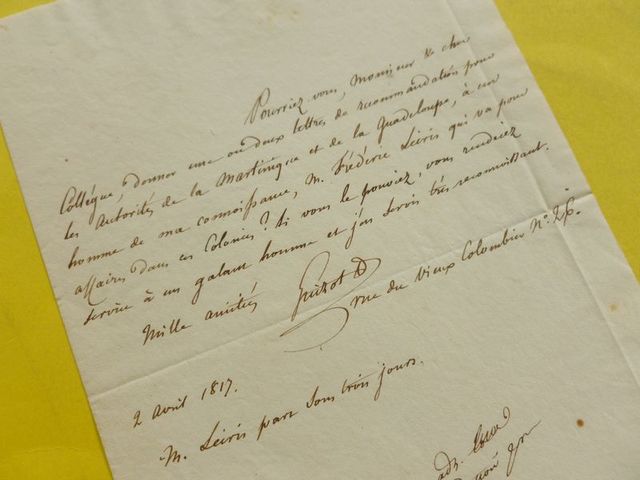 Pourriez vous, Monsieur & cher
Collégue, donner une ou deux lettres de recommandation pour
les autorités de la Martinique et de la Guadeloupe, à un
homme de ma connoissance, M. Fréderic Leiris qui va pour
affaires dans ces Colonies? Si vous le pouviez, vous rendriez
service à un galant homme et j'en serois très reconnoissant.
Mille amitiés Guizot
rue du Vieux Colombier N.o 26.
2 avril 1817.
M. Leiris part sous trois jours.